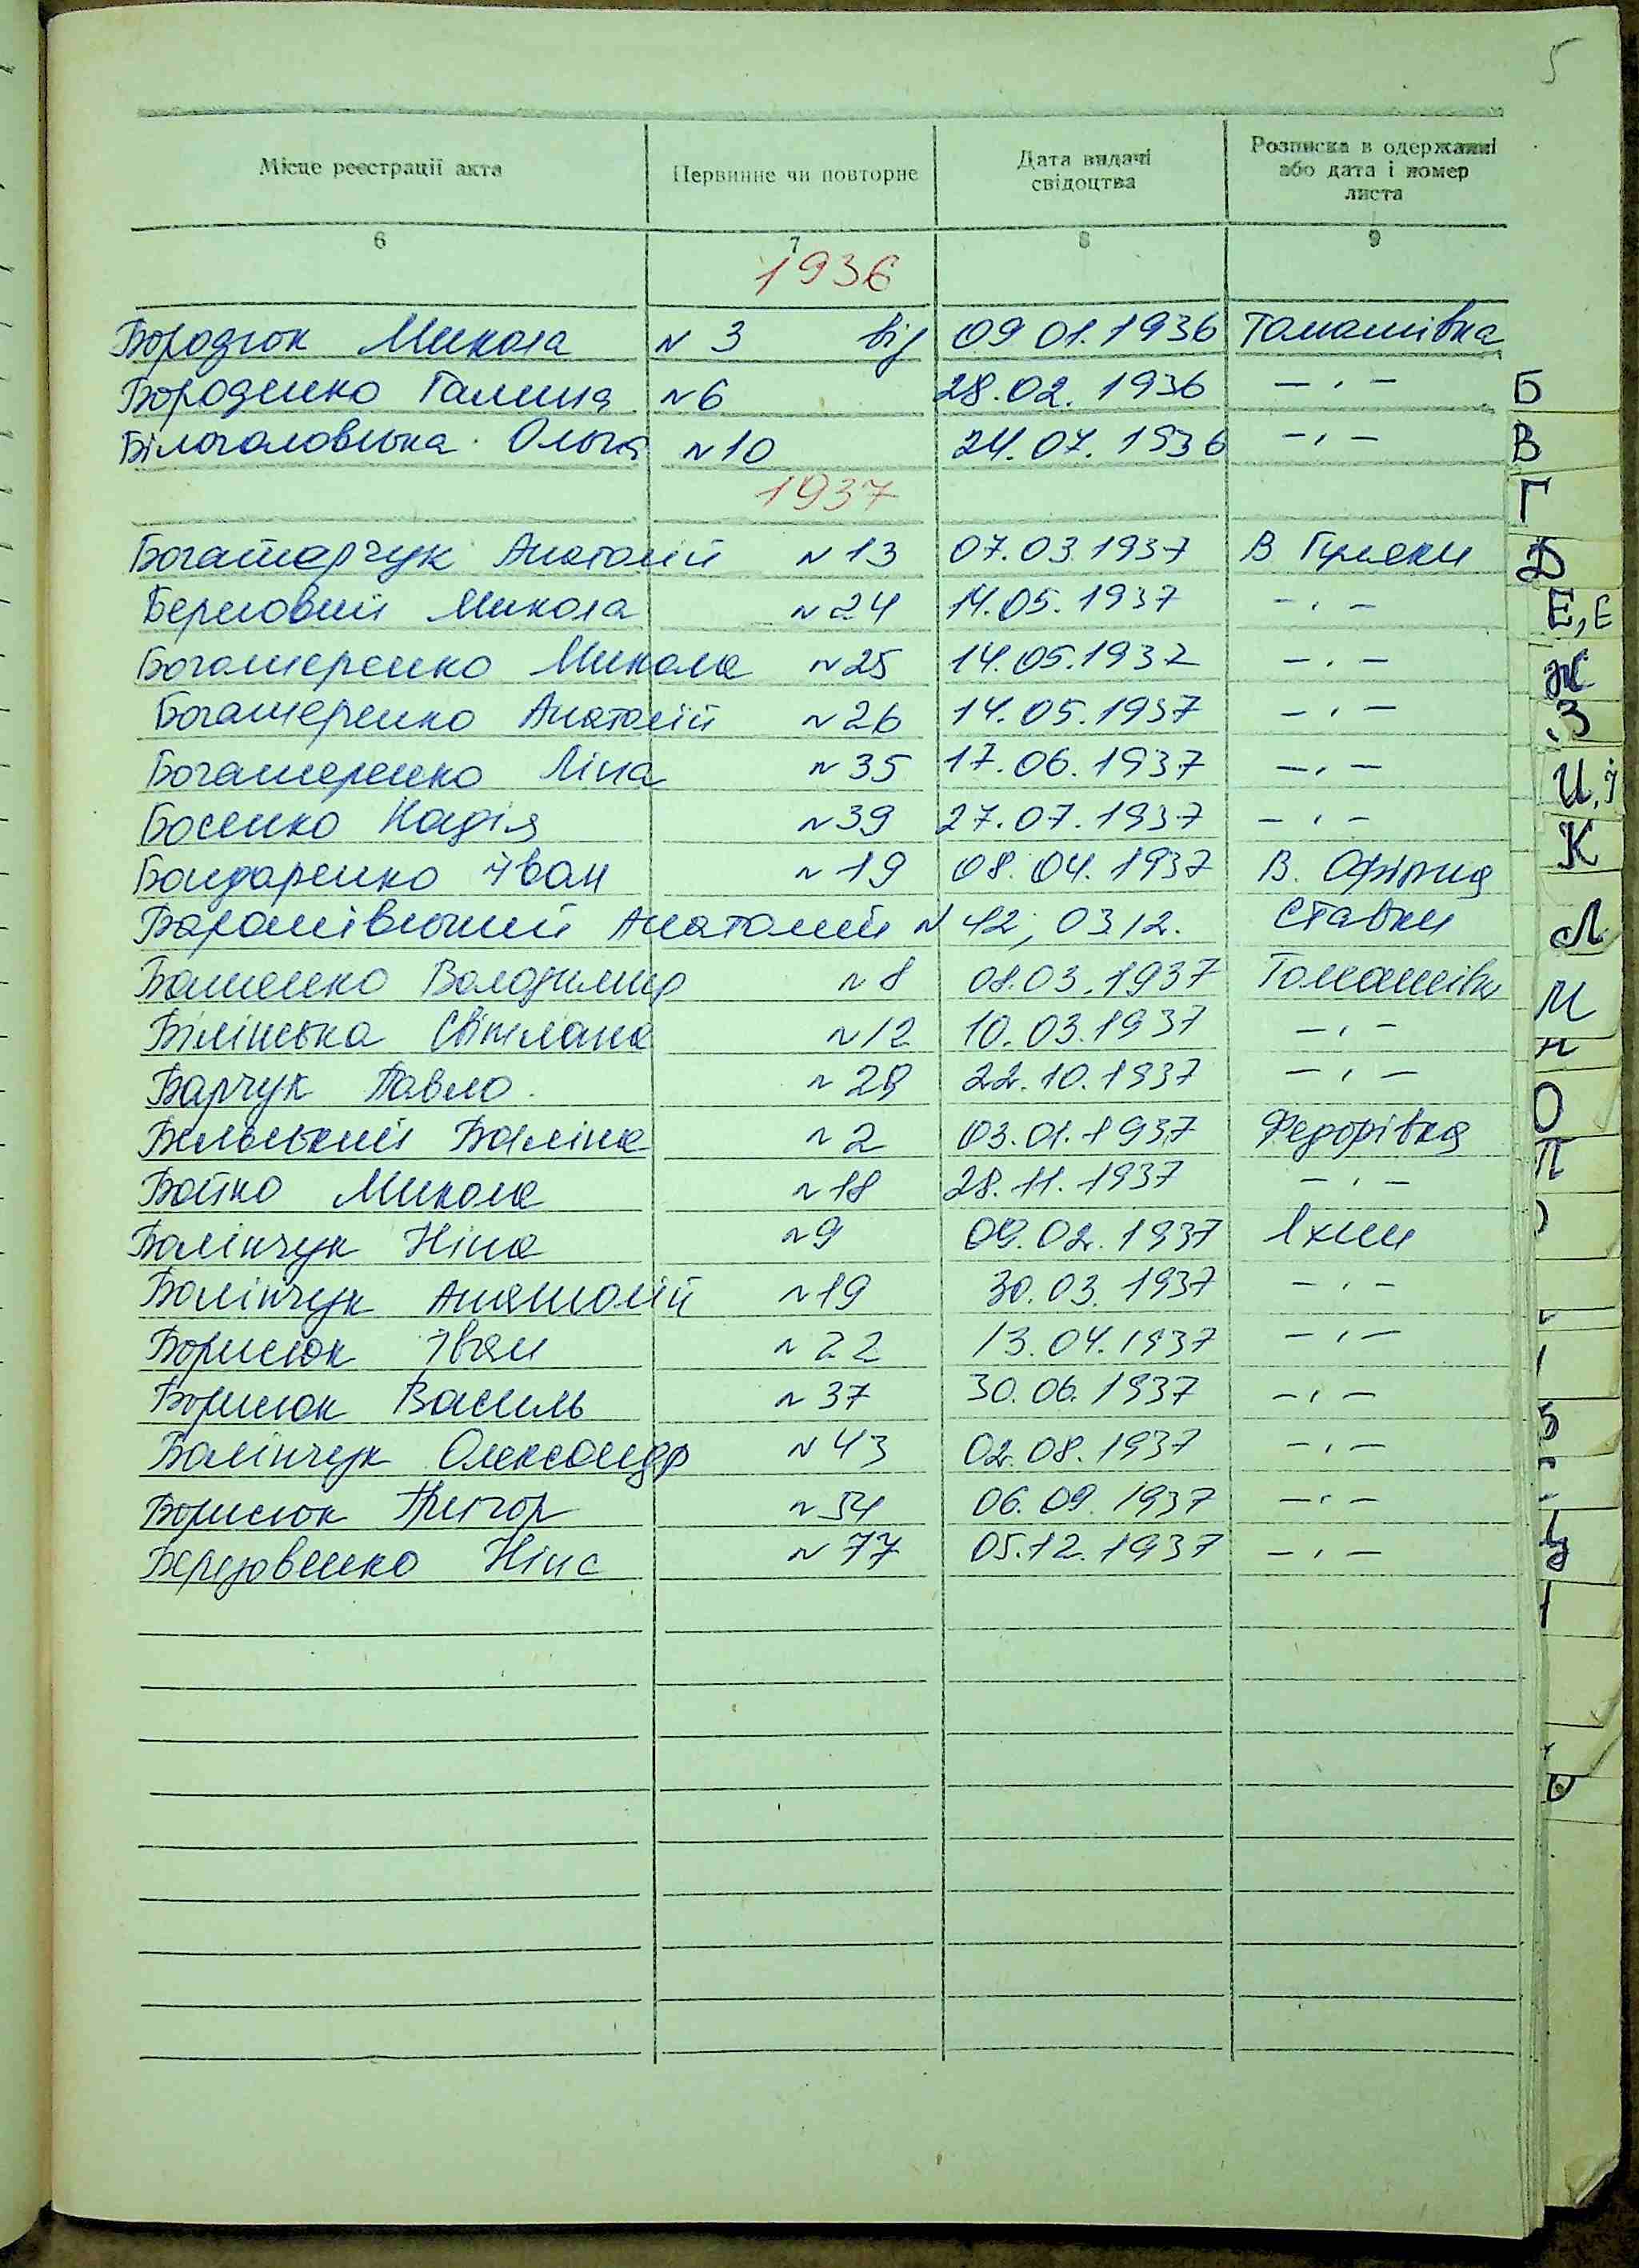 5
Місце реєстрації акта Первинне чи повторне Дата видачі свідоцтва Розписка в одержанні або дата і номер листа
6 7 8 9
1936
Бородюк Микола N 3 від 09 01.1936 Томашівка
Бороденко Галина N6 28.02.1936 — , —
Білоголовська Ольга N10 24.07.1936 — , —
1937
Богатарчук Анатолій N13 07.03.1937 В Гуляки
Береговий Микола N24 14.05.1937 — , —
Богатеренко Микола N25 14.05.1937 — , —
Богатеренко Анатолій N26 14.05.1937 — , —
Богатеренко Ліна N35 17.06.1937 — , —
Босенко Надія N39 27.07.1937 — , —
Бондаренко Іван N19 08.04.1937 В. Офірна
Анатолий N 42, 03/2. Ставки
Володимир N8 08.03.1937 Томашівка
Білінська Світлана N12 10.03.1937 — , —
Барчук Павло N28 22.10.1937 — , —
Бельський N2 03.01.1937 Федорівка
Бойко Микола N18 28.11.1937 — , —
Балінчук Ніна N9 09.02.1937 Яхни
Балінчук Анатолій N19 30.03.1937 — , —
Борисюк Іван N22 13.04.1937 — , —
Борисюк Василь N37 30.06.1937 — , —
Балінчук Олександр N43 02.08.1937 — , —
Борисюк Григор N54 06.09.1937 — , —
Березовенко Ніна N77 05.12.1937 — , —
Б
В
Г
Д
Е, Є
Ж
З
И, І
К
Л
М
Н
О
П